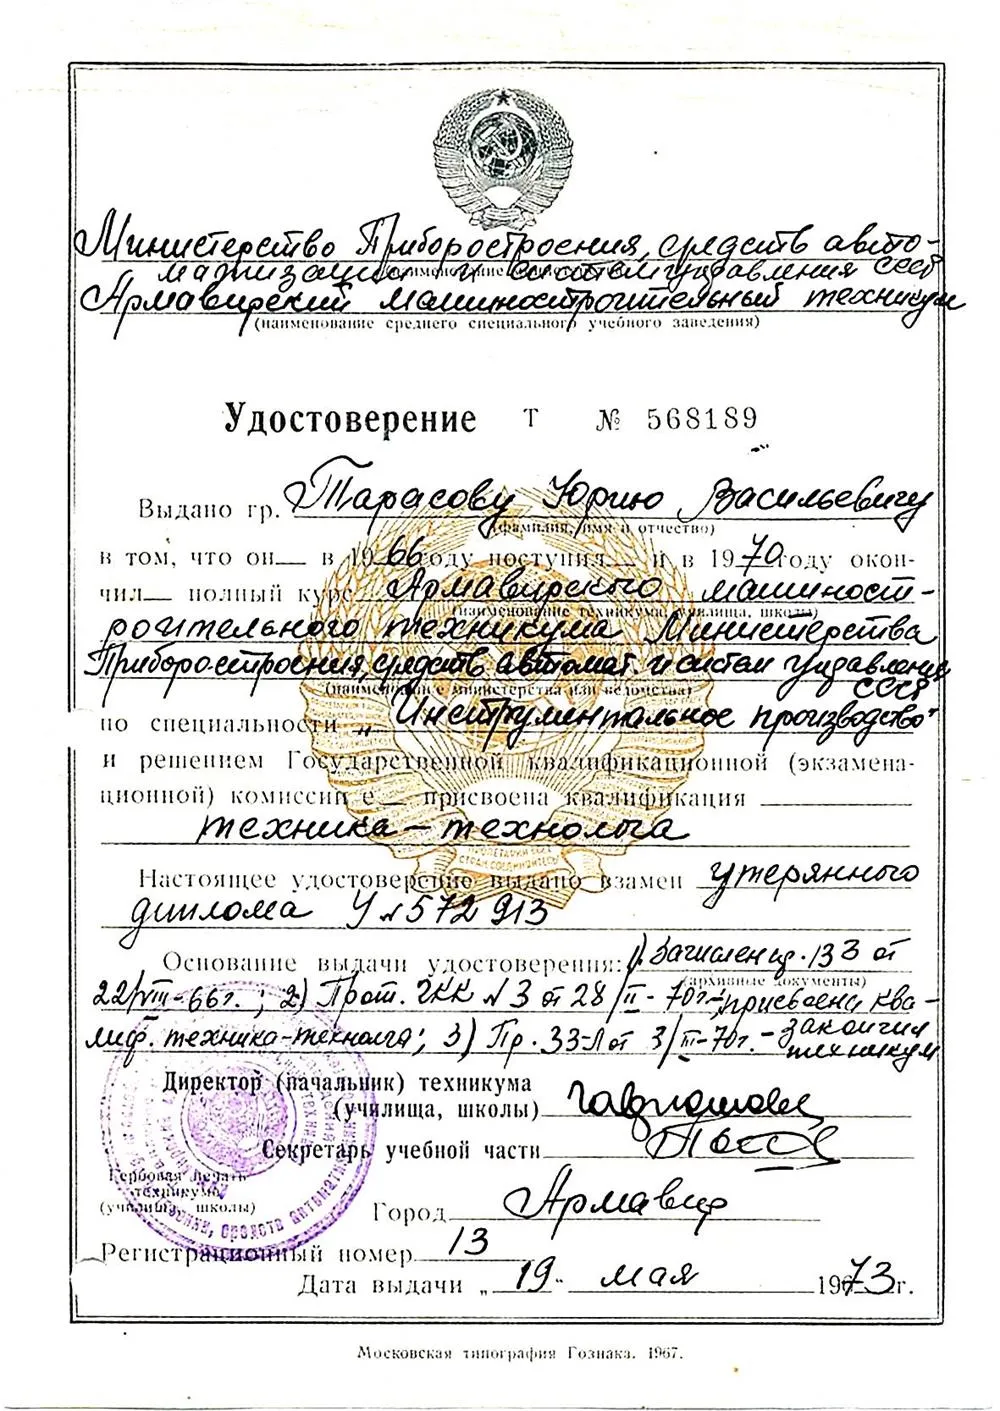 Министерство Приборостроения, средств авто-
матизации и систем управления СССР
Армавирский машиностроительный техникум
(наименование среднего специального учебного заведения)
Удостоверение Т № 568189
Выдано гр. Тарасову Юрию Васильевичу
(фамилия, имя и отчество)
в том, что он в 1966 году поступил и в 1970 году окон-
чил полный курс Армавирского машиност-
(наименование техникума, училища, школы)
роительного техникума Министерства
Приборостроения, средств автомат. и систем управления
(наименование министерства или ведомства)
СССР
по специальности „Инструментальное производство"
и решением Государственной квалификационной (экзамена-
ционной) комиссии е присвоена квалификация
техника-технолога
ПРОЛЕТАРИИ ВСЕХ
СТРАН, СОЕДИНЯЙТЕСЬ!
Настоящее удостоверение выдано взамен утерянного
диплома У № 572913
Основание выдачи удостоверения: 1) Зачислен пр. 133 от
(архивные документы)
22/VIII-66г.; 2) Прот. ГКК № 3 от 28/II-70г.-присвоена ква-
лиф. техника-технолога; 3) Пр. 33-Л от 3/III-70г.-закончил
техникум
Директор (начальник) техникума
(училища, школы)
Секретарь учебной части
Гербовая печать
техникума
(училища, школы)
Город Армавир
Регистрационный номер 13
Дата выдачи „19" мая 1973 г.
Московская типография Гознака. 1967.